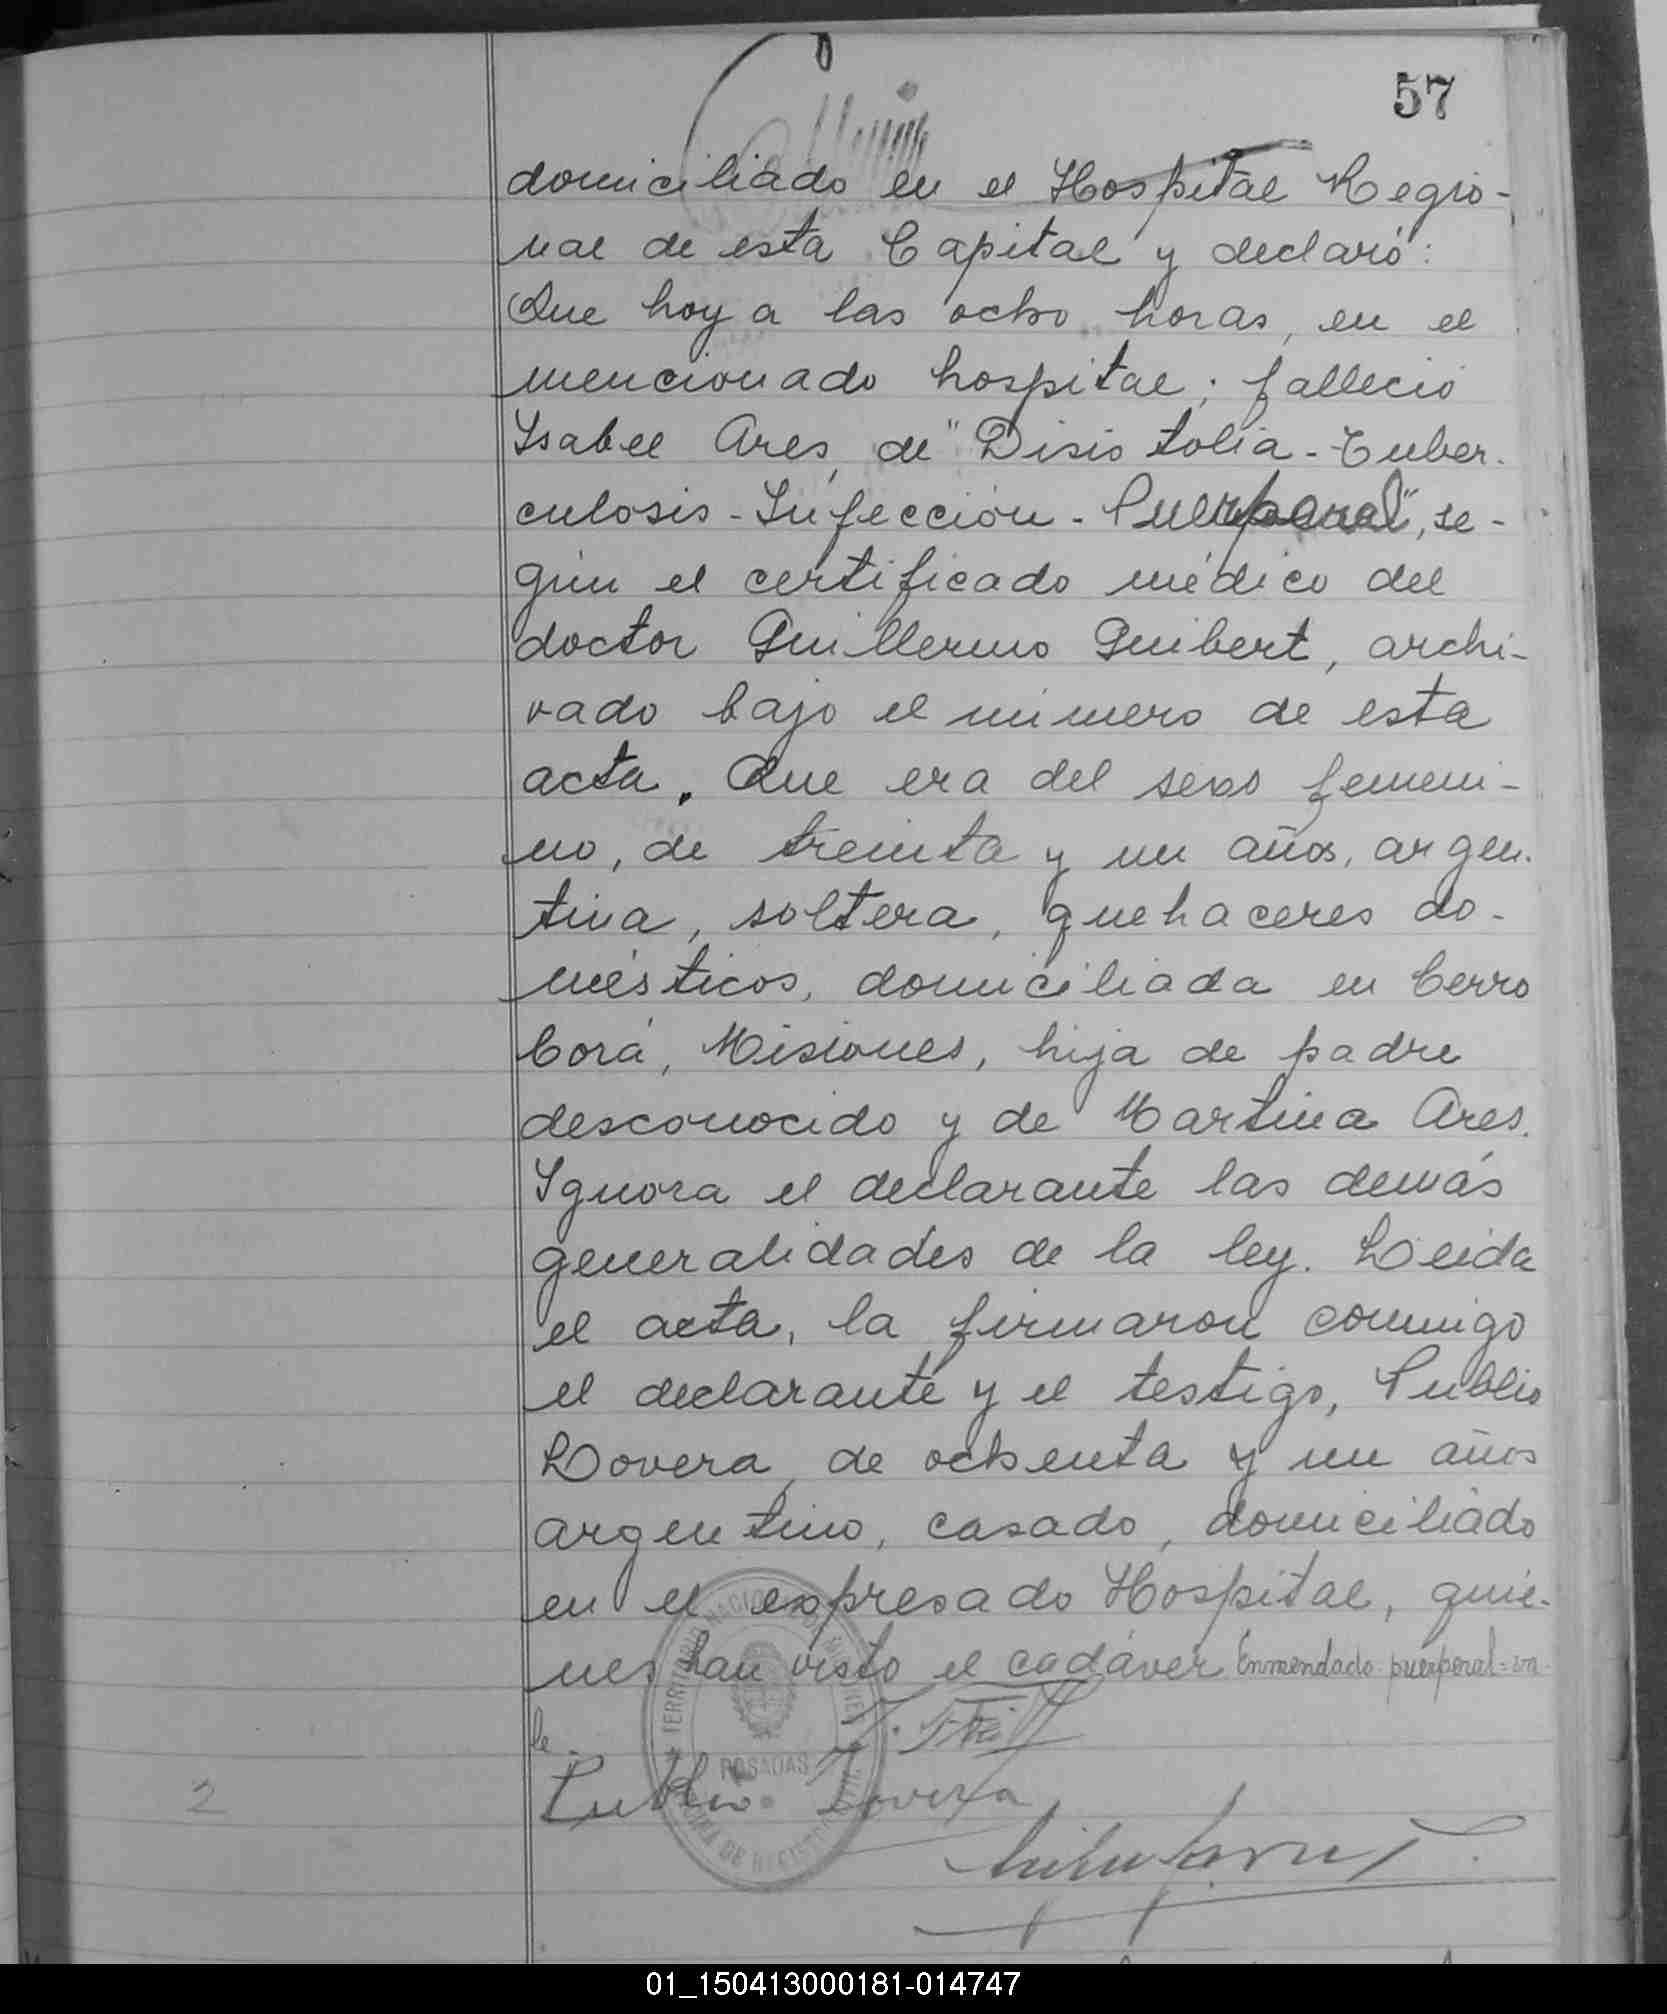 57
domiciliado en el Hospital Regio-
nal de esta Capital y declaró:
Que hoy a las ocho horas, en el
mencionado hospital; falleció
Isabel Ares, de "Disistolia - Tuber-
culosis - Infección - Puerperal", se-
gún el certificado médico del
doctor Guillermo Guibert, archi-
vado bajo el número de esta
acta. Que era del sexo femeni-
no, de treinta y un años, argen-
tina, soltera, quehaceres do-
mésticos, domiciliada en Cerro
Corá, Misiones, hija de padre
desconocido y de Martina Ares.
Ignora el declarante las demás
generalidades de la ley. Leida
el acta, la firmaron conmigo
el declarante y el testigo, Publio
Lovera, de ochenta y un años
argentino, casado, domiciliado
en el expresado Hospital, quie-
nes han visto el cadáver. Enmendado-puerperal=va-
le.
Publio Lovera
TERRITORIO NACIONAL DE MISIONES
POSADAS
2
01_150413000181-014747